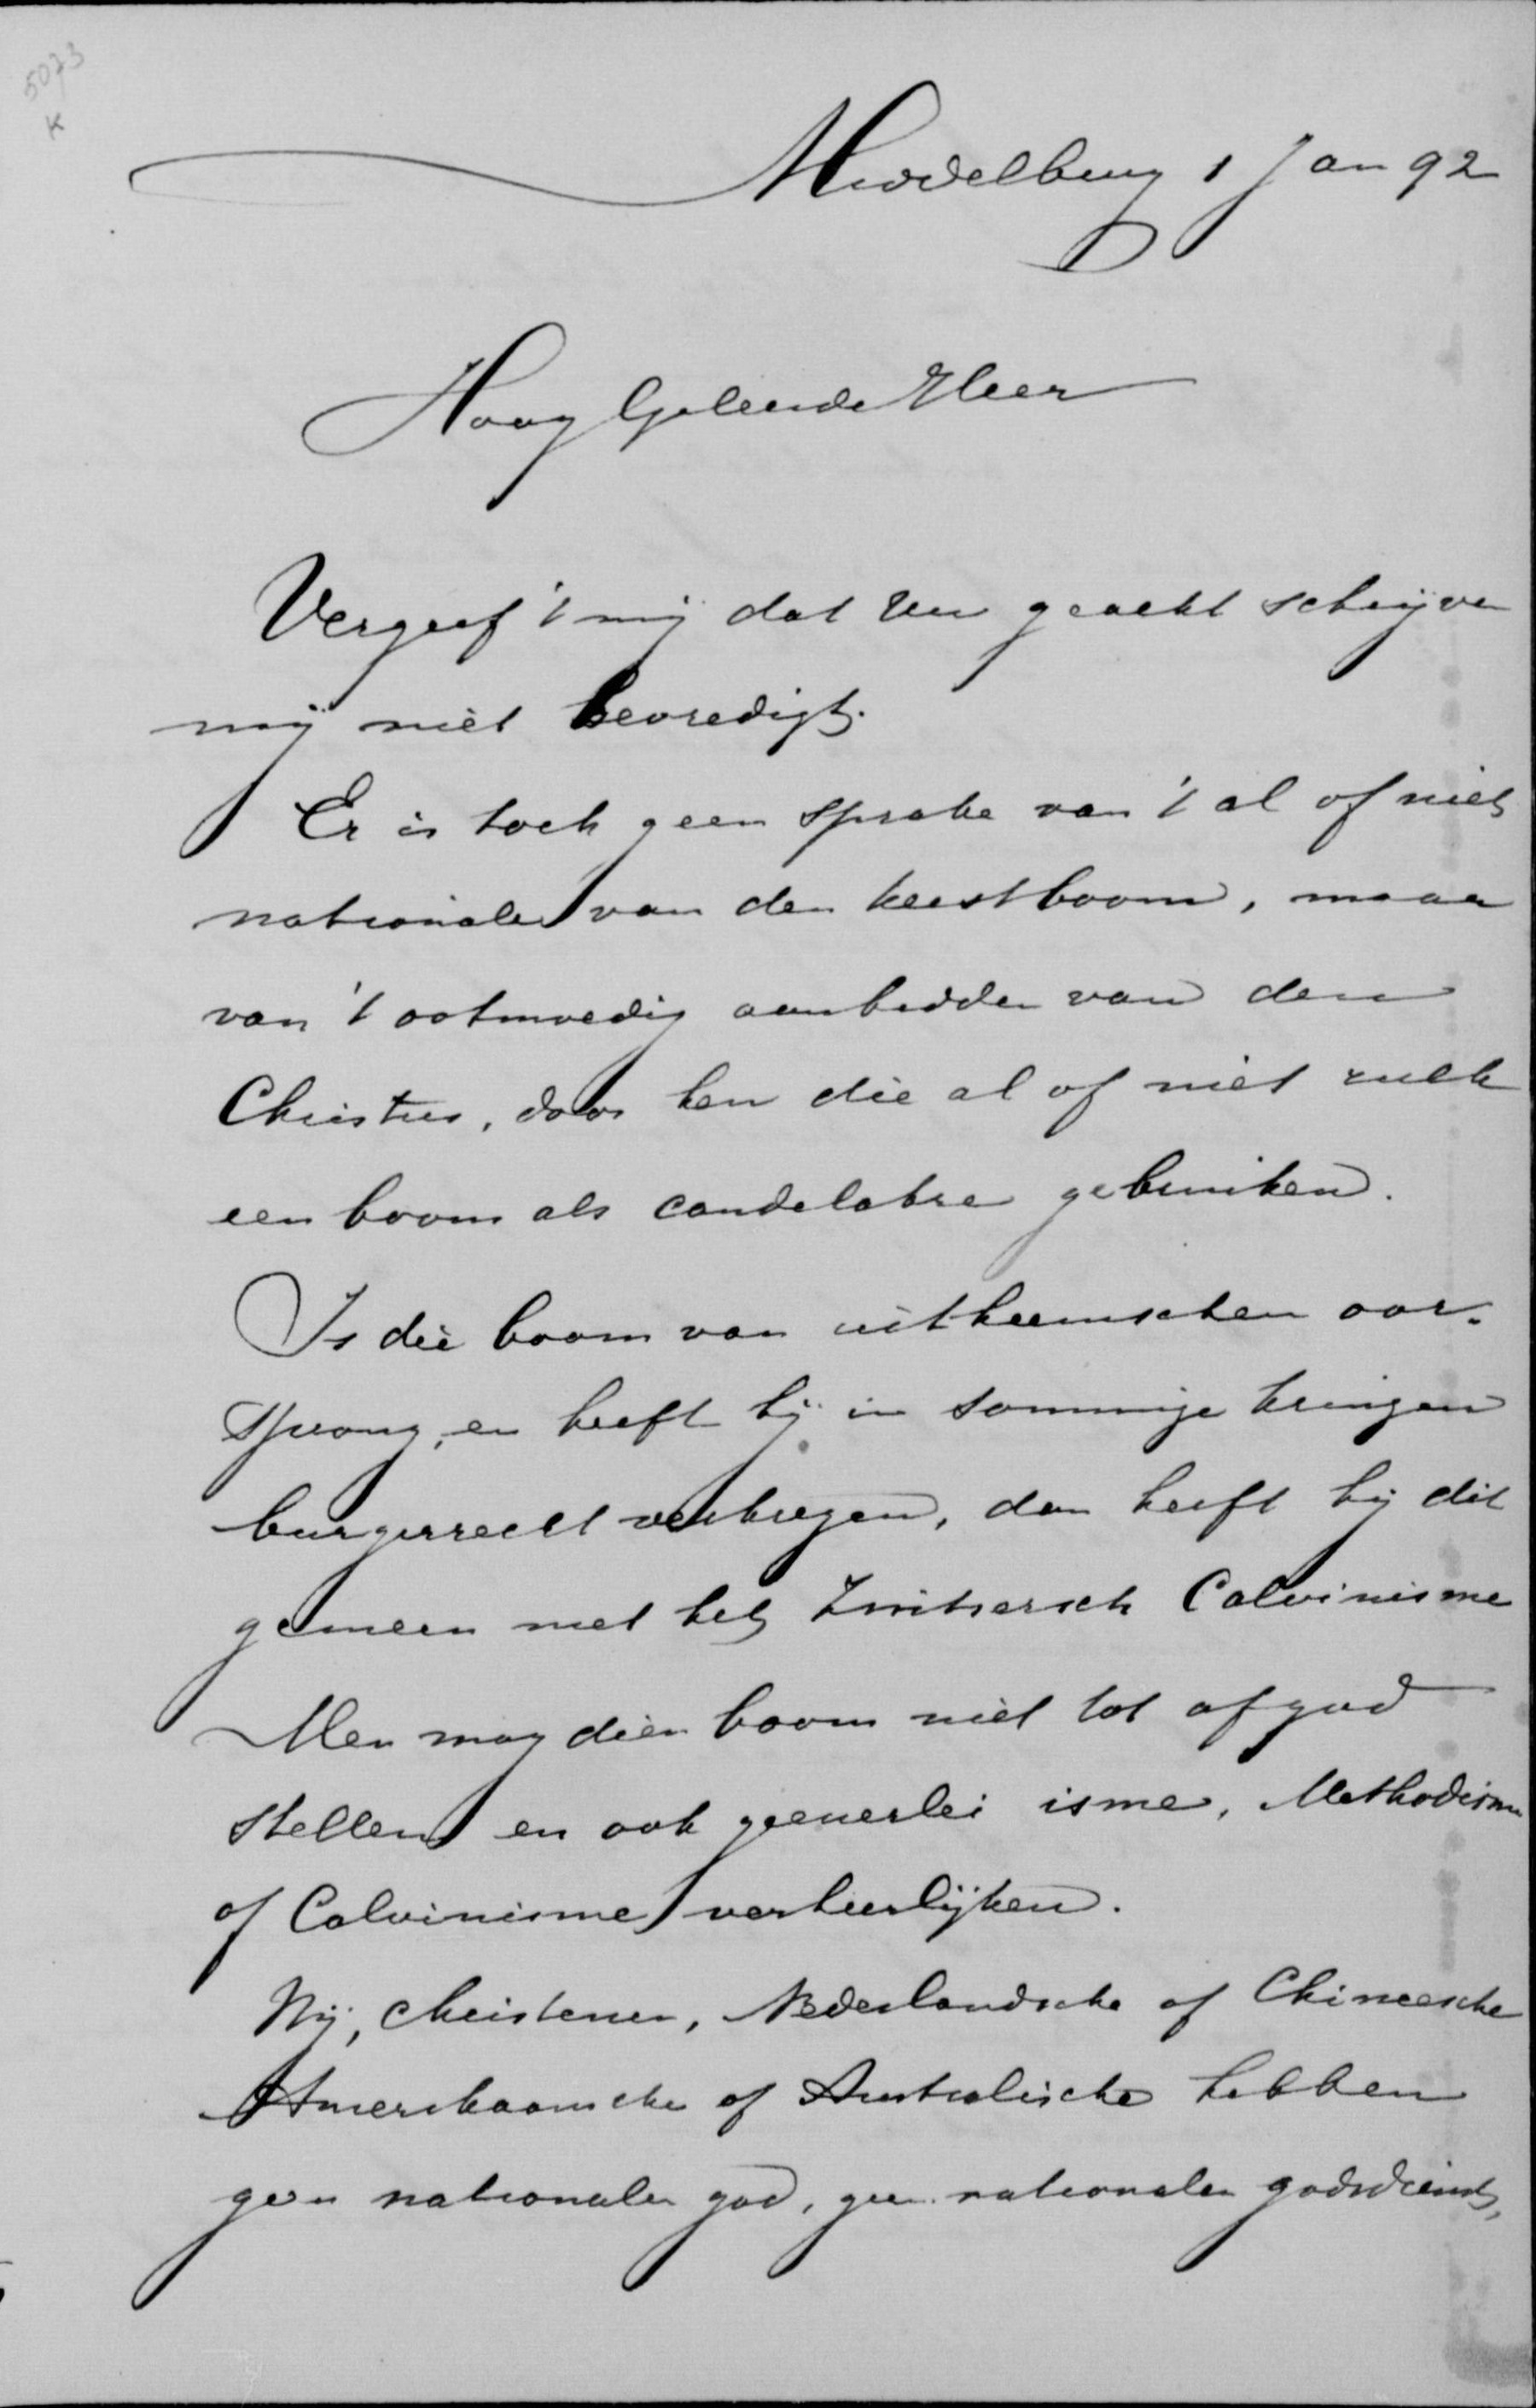 5073
K
Middelburg 1 Jan 92
Hoog Geleerde Heer
Vergeef 't mij dat Uw geacht schrijven
mij niet bevredigt.
Er is toch geen sprake van 't al of niet
nationale van den kerstboom, maar
van 't ootmoedig aanbidden van den
Christus, door hen die al of niet zulk
een boom als candelabre gebruiken.
Is die boom van uitheemschen oor-
sprong, en heeft hij in sommige kringen
burgerrecht verkregen, dan heeft hij dit
gemeen met het Zwitsersch Calvinisme
Men mag dien boom niet tot afgod
stellen en ook geenerlei isme, Methodisme
of Calvinisme verheerlijken.
Wij, Christenen, Nederlandsche of Chineesche
Amerikaansche of Australische hebben
geen nationalen god, geen nationalen godsdienst,